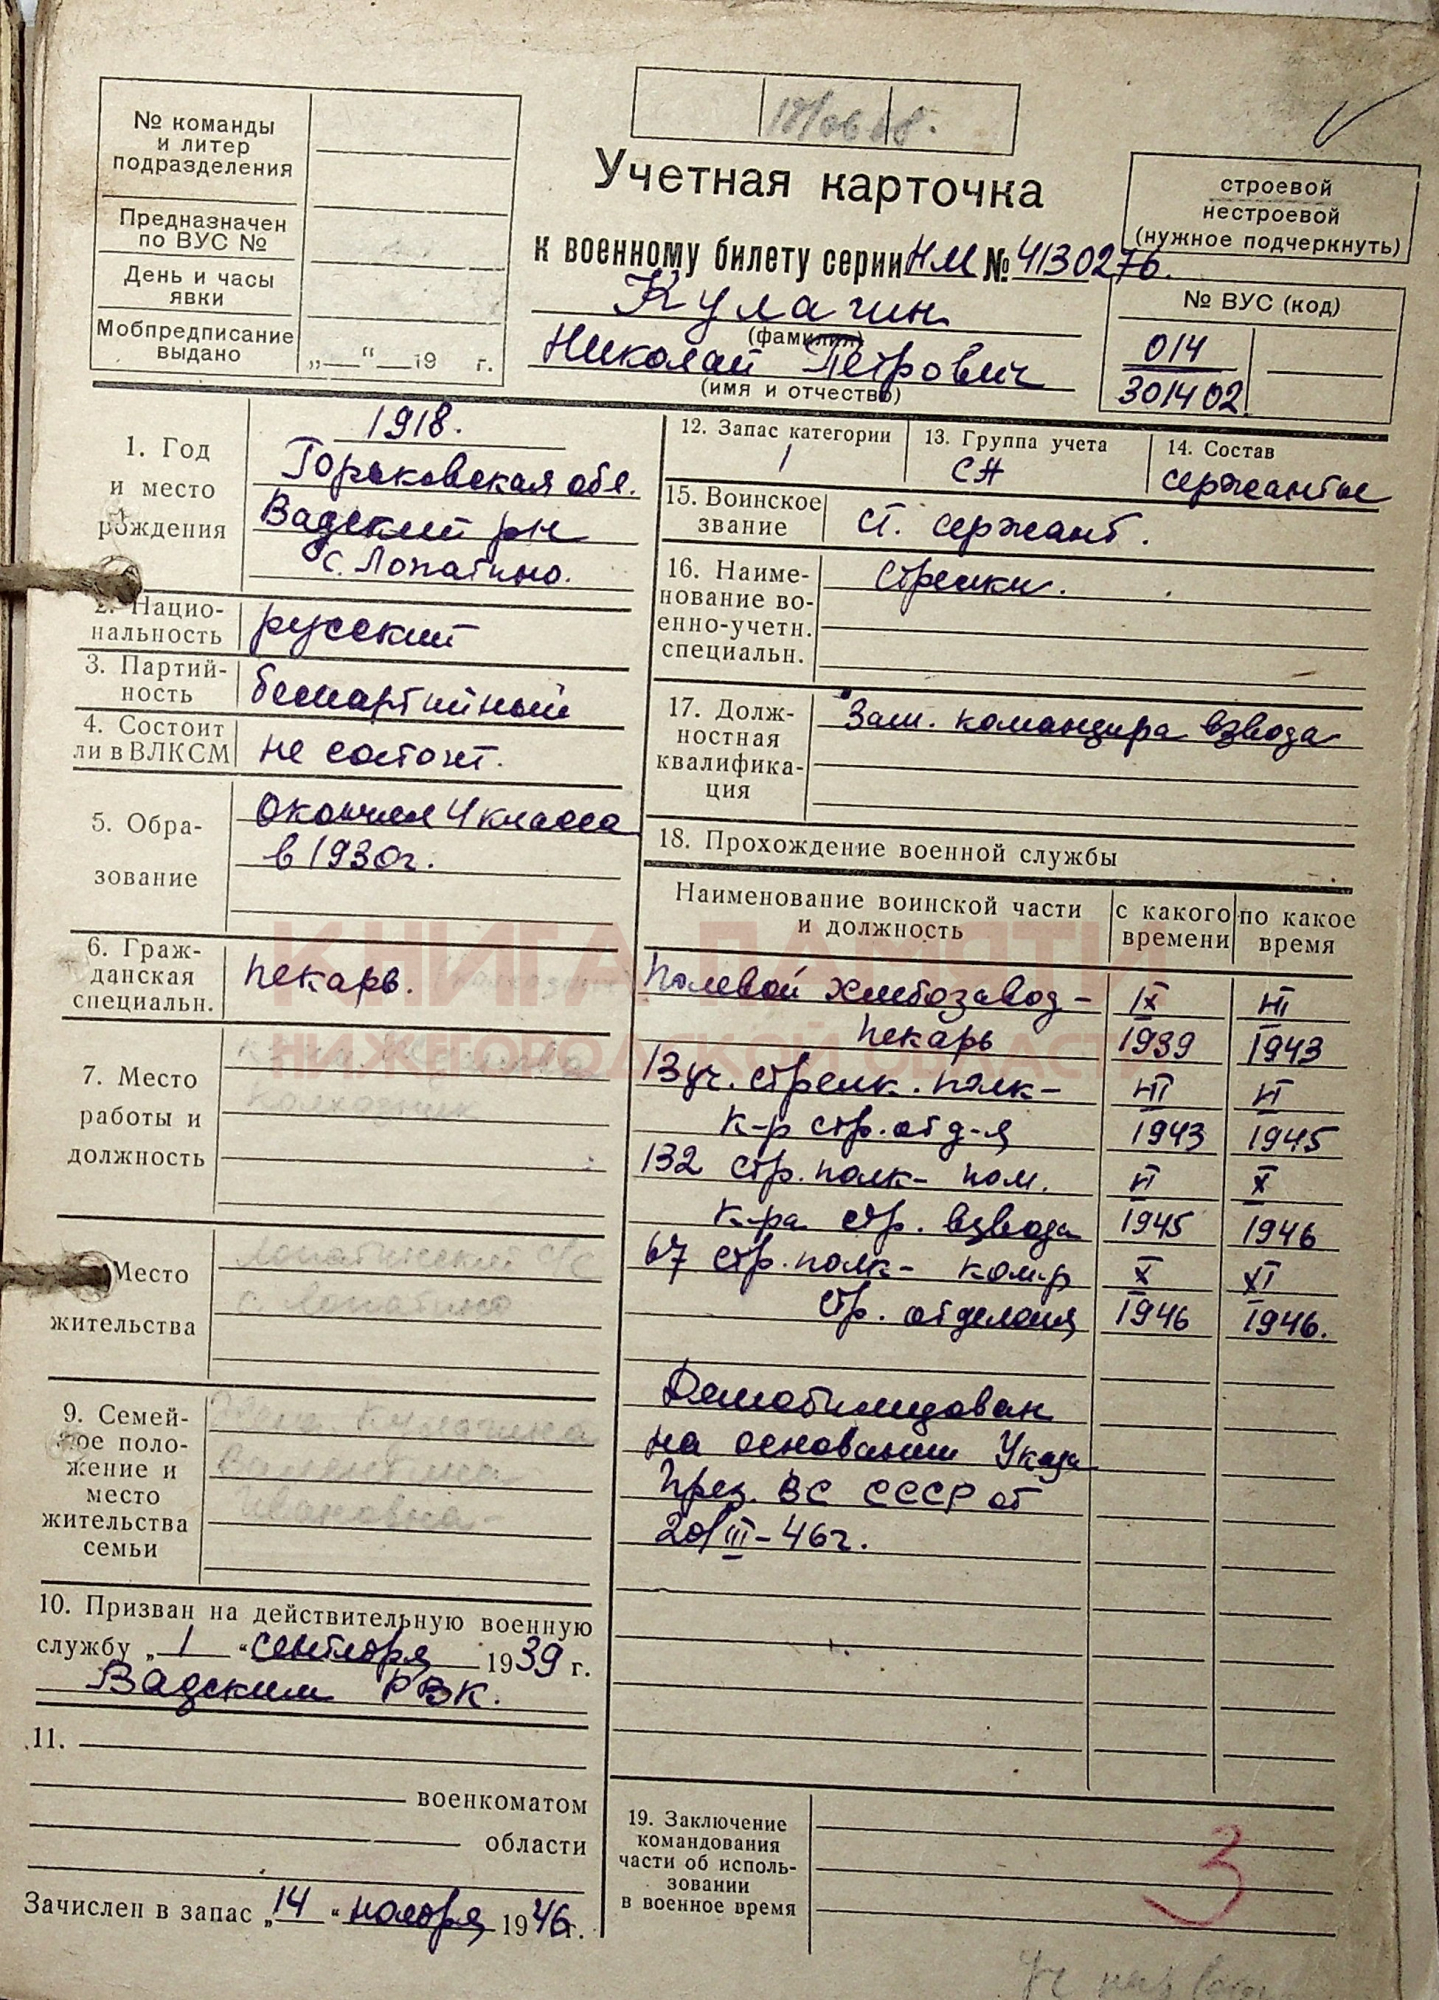 № команды
и литер
подразделения
Предназначен
по ВУС №
День и часы
явки
Мобпредписание
выдано
„ “ 19 г.
Учетная карточка
к военному билету серии НМ № 4130276.
Кулагин
(фамилия)
Николай Петрович
(имя и отчество)
строевой
нестроевой
(нужное подчеркнуть)
№ ВУС (код)
014
301402
1. Год
и место
рождения
1918.
Горьковская обл.
Вадский р-н
с. Лопатино.
2. Нацио-
нальность
русский
3. Партий-
ность
беспартийный
4. Состоит
ли в ВЛКСМ
не состоит.
5. Обра-
зование
Окончил 4 класса
в 1930г.
6. Граж-
данская
специальн.
Пекарь.
7. Место
работы и
должность
колхозник
Место
жительства
Лопатинский с/с
с. Лопатино
9. Семей-
ное поло-
жение и
место
жительства
семьи
Жена Кулагина
Валентина
Ивановна
10. Призван на действительную военную
службу „1“ сентября 1939 г.
Вадским РВК.
11.
военкоматом
области
Зачислен в запас „14“ ноября 1946г.
12. Запас категории
1
13. Группа учета
СА
14. Состав
сержанты
15. Воинское
звание
ст. сержант.
16. Наиме-
нование во-
енно-учетн.
специальн.
Стрелки.
17. Долж-
ностная
квалифика-
ция
Зам. командира взвода
18. Прохождение военной службы
Наименование воинской части
и должность
с какого
времени
по какое
время
Полевой хлебозавод - IX III
пекарь 1939 1943
13 уч. стрелк. полк - III VI
к-р стр. отд-я 1943 1945
132 стр. полк - пом. VI X
к-ра стр. взвода 1945 1946
67 стр. полк - ком-р X XI
стр. отделения 1946 1946.
Демобилизован
на основании Указа
През. ВС СССР от
20/III-46г.
19. Заключение
командования
части об исполь-
зовании
в военное время
3
КНИГА ПАМЯТИ
НИЖЕГОРОДСКОЙ ОБЛАСТИ